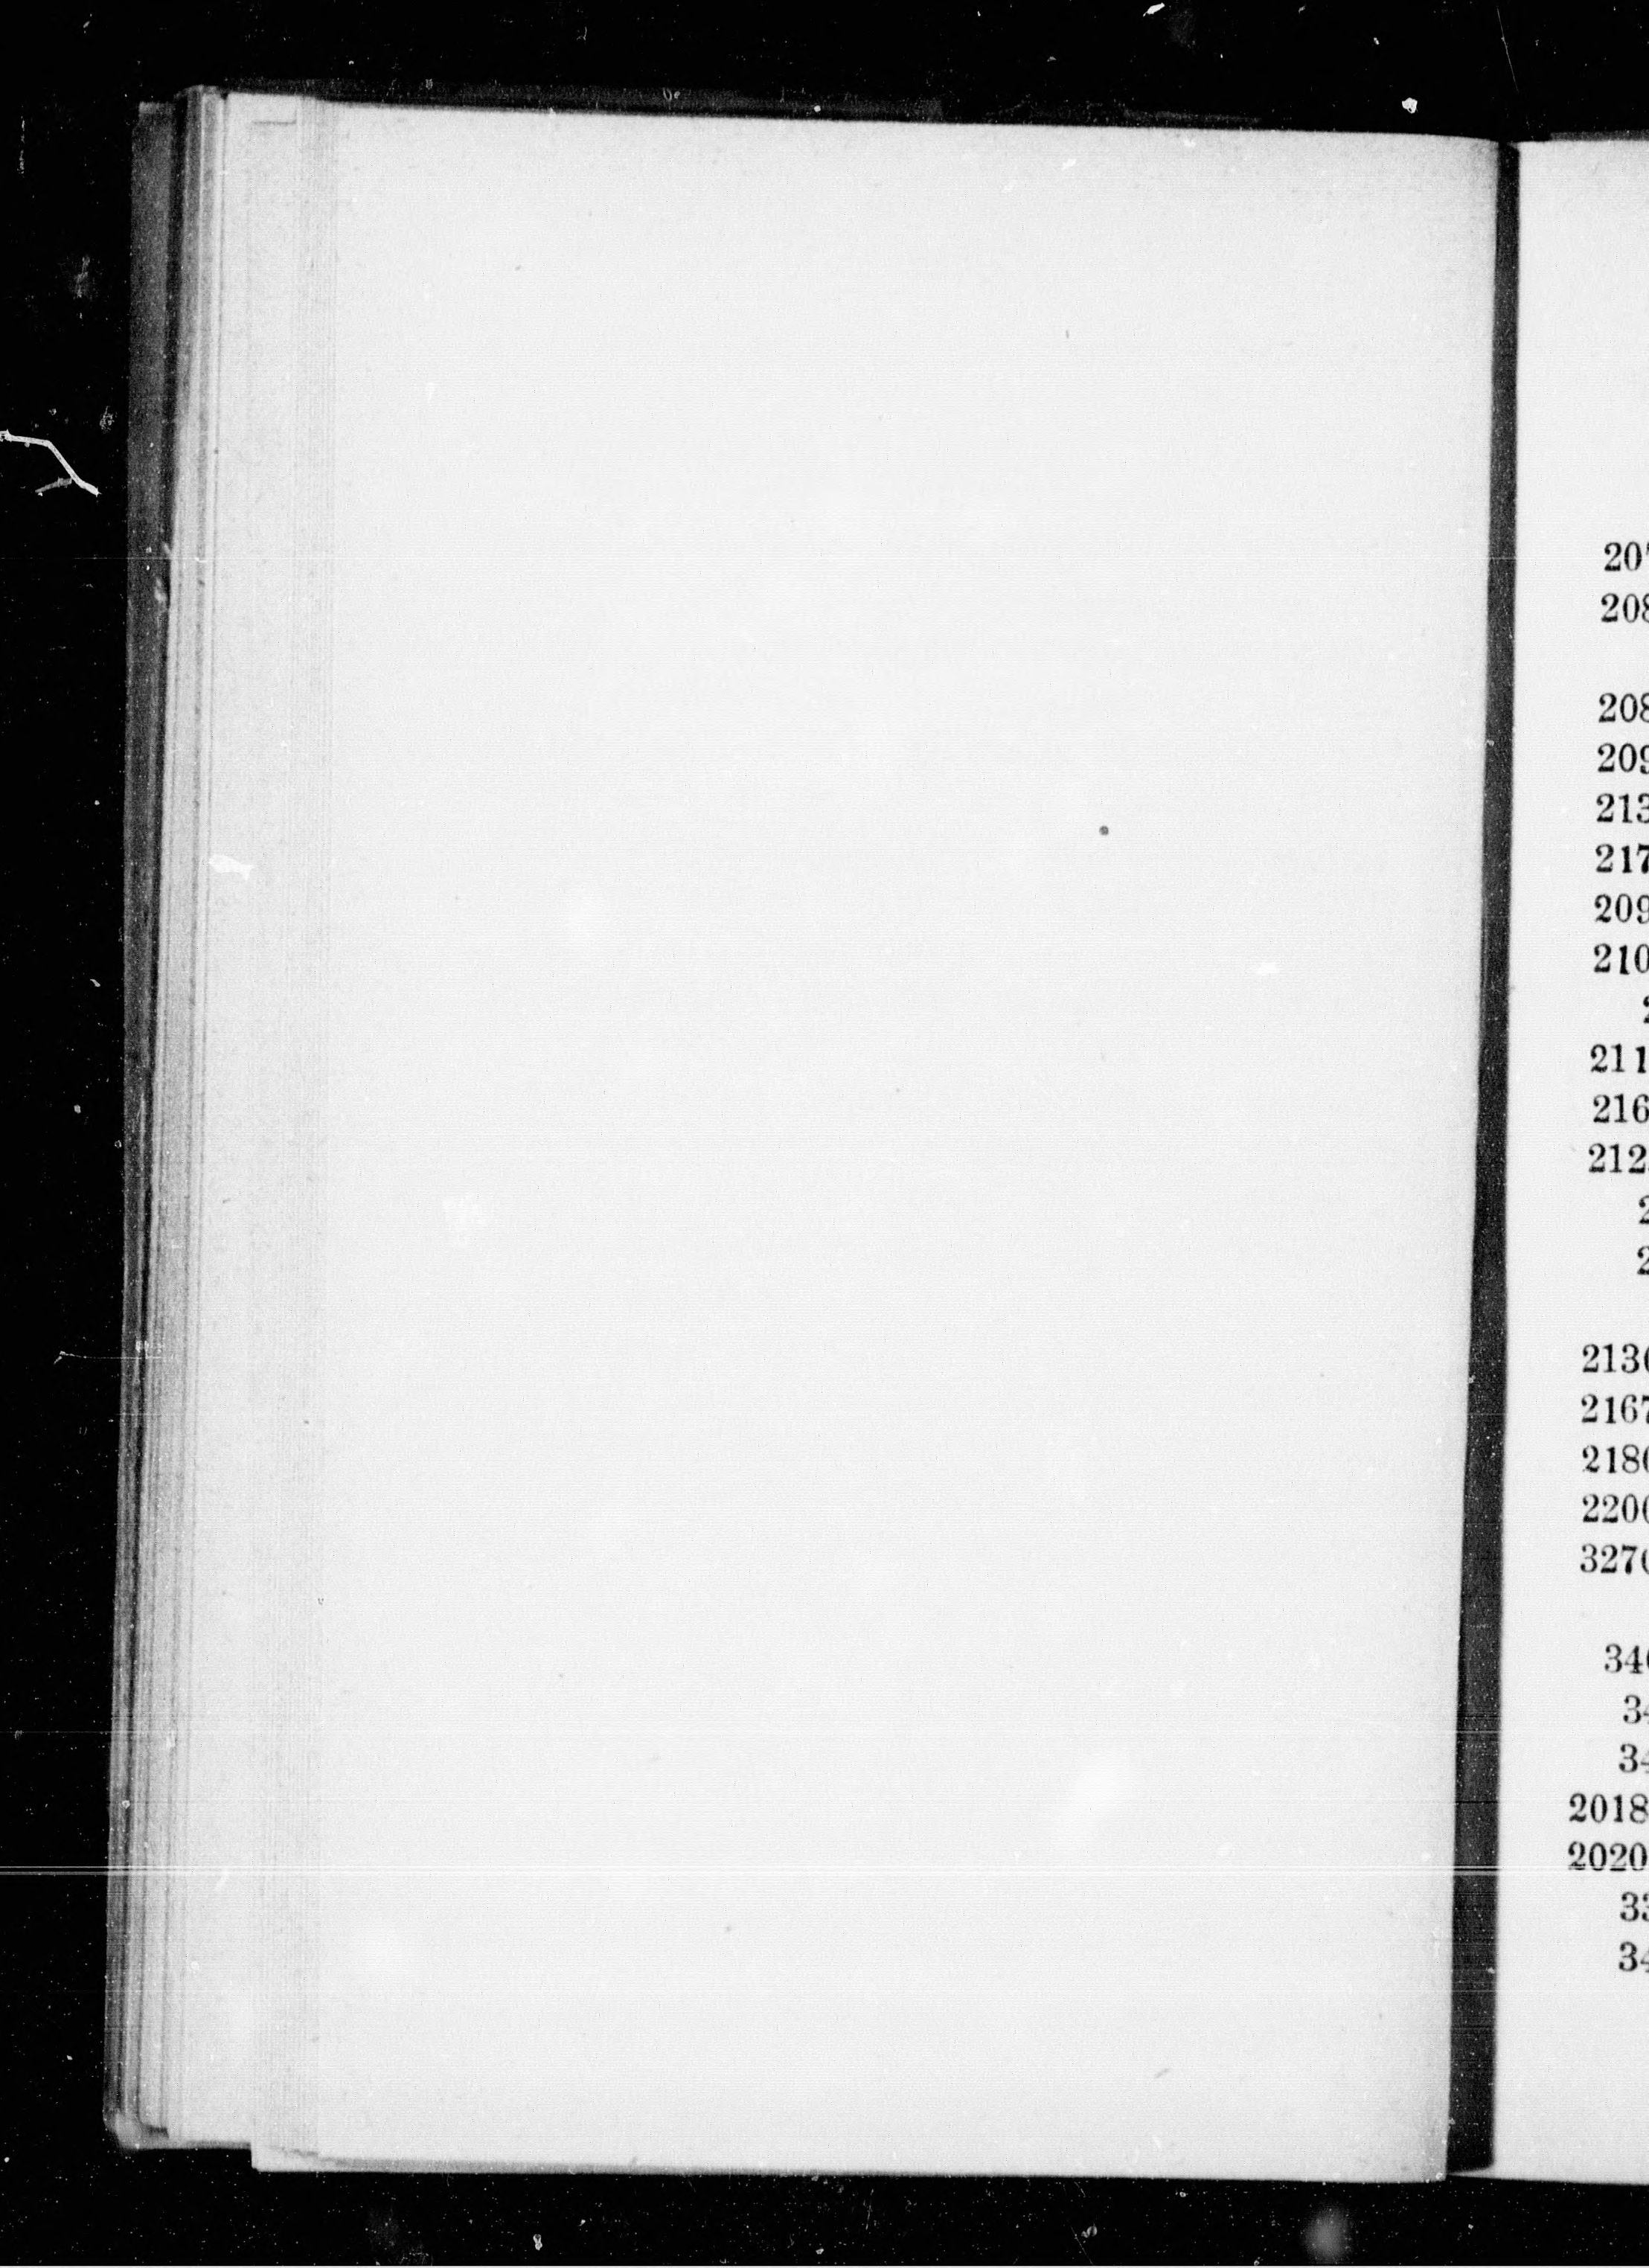 20
208
208
209
213
217
209
210
2
211
216
212
2
2
213
2167
218
220
327
34
34
34
2018
2020
33
34